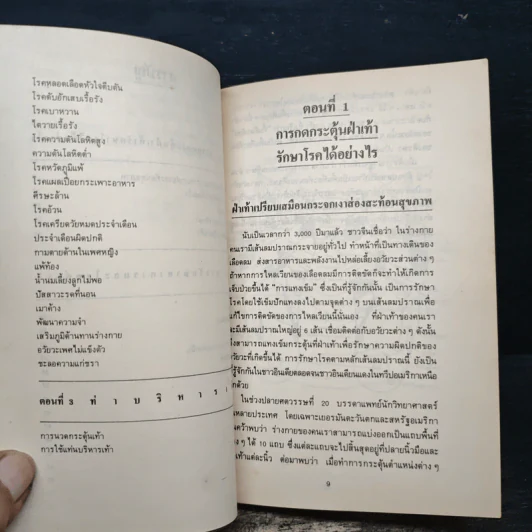 โรคหลอดเลือดหัวใจตีบตัน
โรคตับอักเสบเรื้อรัง
โรคเบาหวาน
ไตวายเรื้อรัง
โรคความดันโลหิตสูง
ความดันโลหิตต่ำ
โรคหวัดภูมิแพ้
โรคแผลเปื่อยกระเพาะอาหาร
ศีรษะล้าน
โรคอ้วน
โรคเครียดวัยหมดประจำเดือน
ประจำเดือนผิดปกติ
กามตายด้านในเพศหญิง
แพ้ท้อง
น้ำนมเลี้ยงลูกไม่พอ
ปัสสาวะรดที่นอน
เมาค้าง
พัฒนาความจำ
เสริมภูมิต้านทานร่างกาย
อวัยวะเพศไม่แข็งตัว
ชะลอความแก่ชรา
ตอนที่ 3 ท่าบริหาร
การนวดกระตุ้นเท้า
การใช้แท่นบริหารเท้า
ตอนที่ 1
การกดกระตุ้นฝ่าเท้า
รักษาโรคได้อย่างไร
ฝ่าเท้าเปรียบเสมือนกระจกเงาส่องสะท้อนสุขภาพ
นับเป็นเวลากว่า 3,000 ปีมาแล้ว ชาวจีนเชื่อว่า ในร่างกาย
คนเรามีเส้นลมปราณกระจายอยู่ทั่วไป ทำหน้าที่เป็นทางเดินของ
เลือดลม ส่งสารอาหารและพลังงานไปหล่อเลี้ยงอวัยวะส่วนต่าง ๆ
ถ้าหากการไหลเวียนของเลือดลมมีการติดขัดก็จะทำให้เกิดการ
เจ็บป่วยขึ้นได้ "การแทงเข็ม" ซึ่งเป็นที่รู้จักกันนั้น เป็นการรักษา
โรคโดยใช้เข็มปักแทงลงไปตามจุดต่าง ๆ บนเส้นลมปราณเพื่อ
แก้ไขการติดขัดของการไหลเวียนนี้นั่นเอง ที่ฝ่าเท้าของคนเรา
จะมีเส้นลมปราณใหญ่อยู่ 6 เส้น เชื่อมต่อกับอวัยวะต่าง ๆ ดังนั้น
จึงสามารถแทงเข็มที่ฝ่าเท้าเพื่อรักษาความผิดปกติของ
อวัยวะที่เกิดขึ้นได้ การรักษาโรคตามหลักเส้นลมปราณนี้ ยังเป็น
รู้จักกันในชาวอินเดียตลอดจนชาวอินเดียนแดงในทวีปอเมริกาเหนือ
กด้วย
ในช่วงปลายศตวรรษที่ 20 บรรดาแพทย์นักวิทยาศาสตร์
หลายประเทศ โดยเฉพาะเยอรมันตะวันตกและสหรัฐอเมริกา
นคว้าพบว่า ร่างกายของคนเราสามารถแบ่งออกเป็นแถบพื้นที่
ง ๆ ได้ 10 แถบ ซึ่งแต่ละแถบจะไปสิ้นสุดอยู่ที่ปลายนิ้วมือและ
เท้าแต่ละนิ้ว ต่อมาพบว่า เมื่อทำการกระตุ้นตำแหน่งต่าง ๆ
9